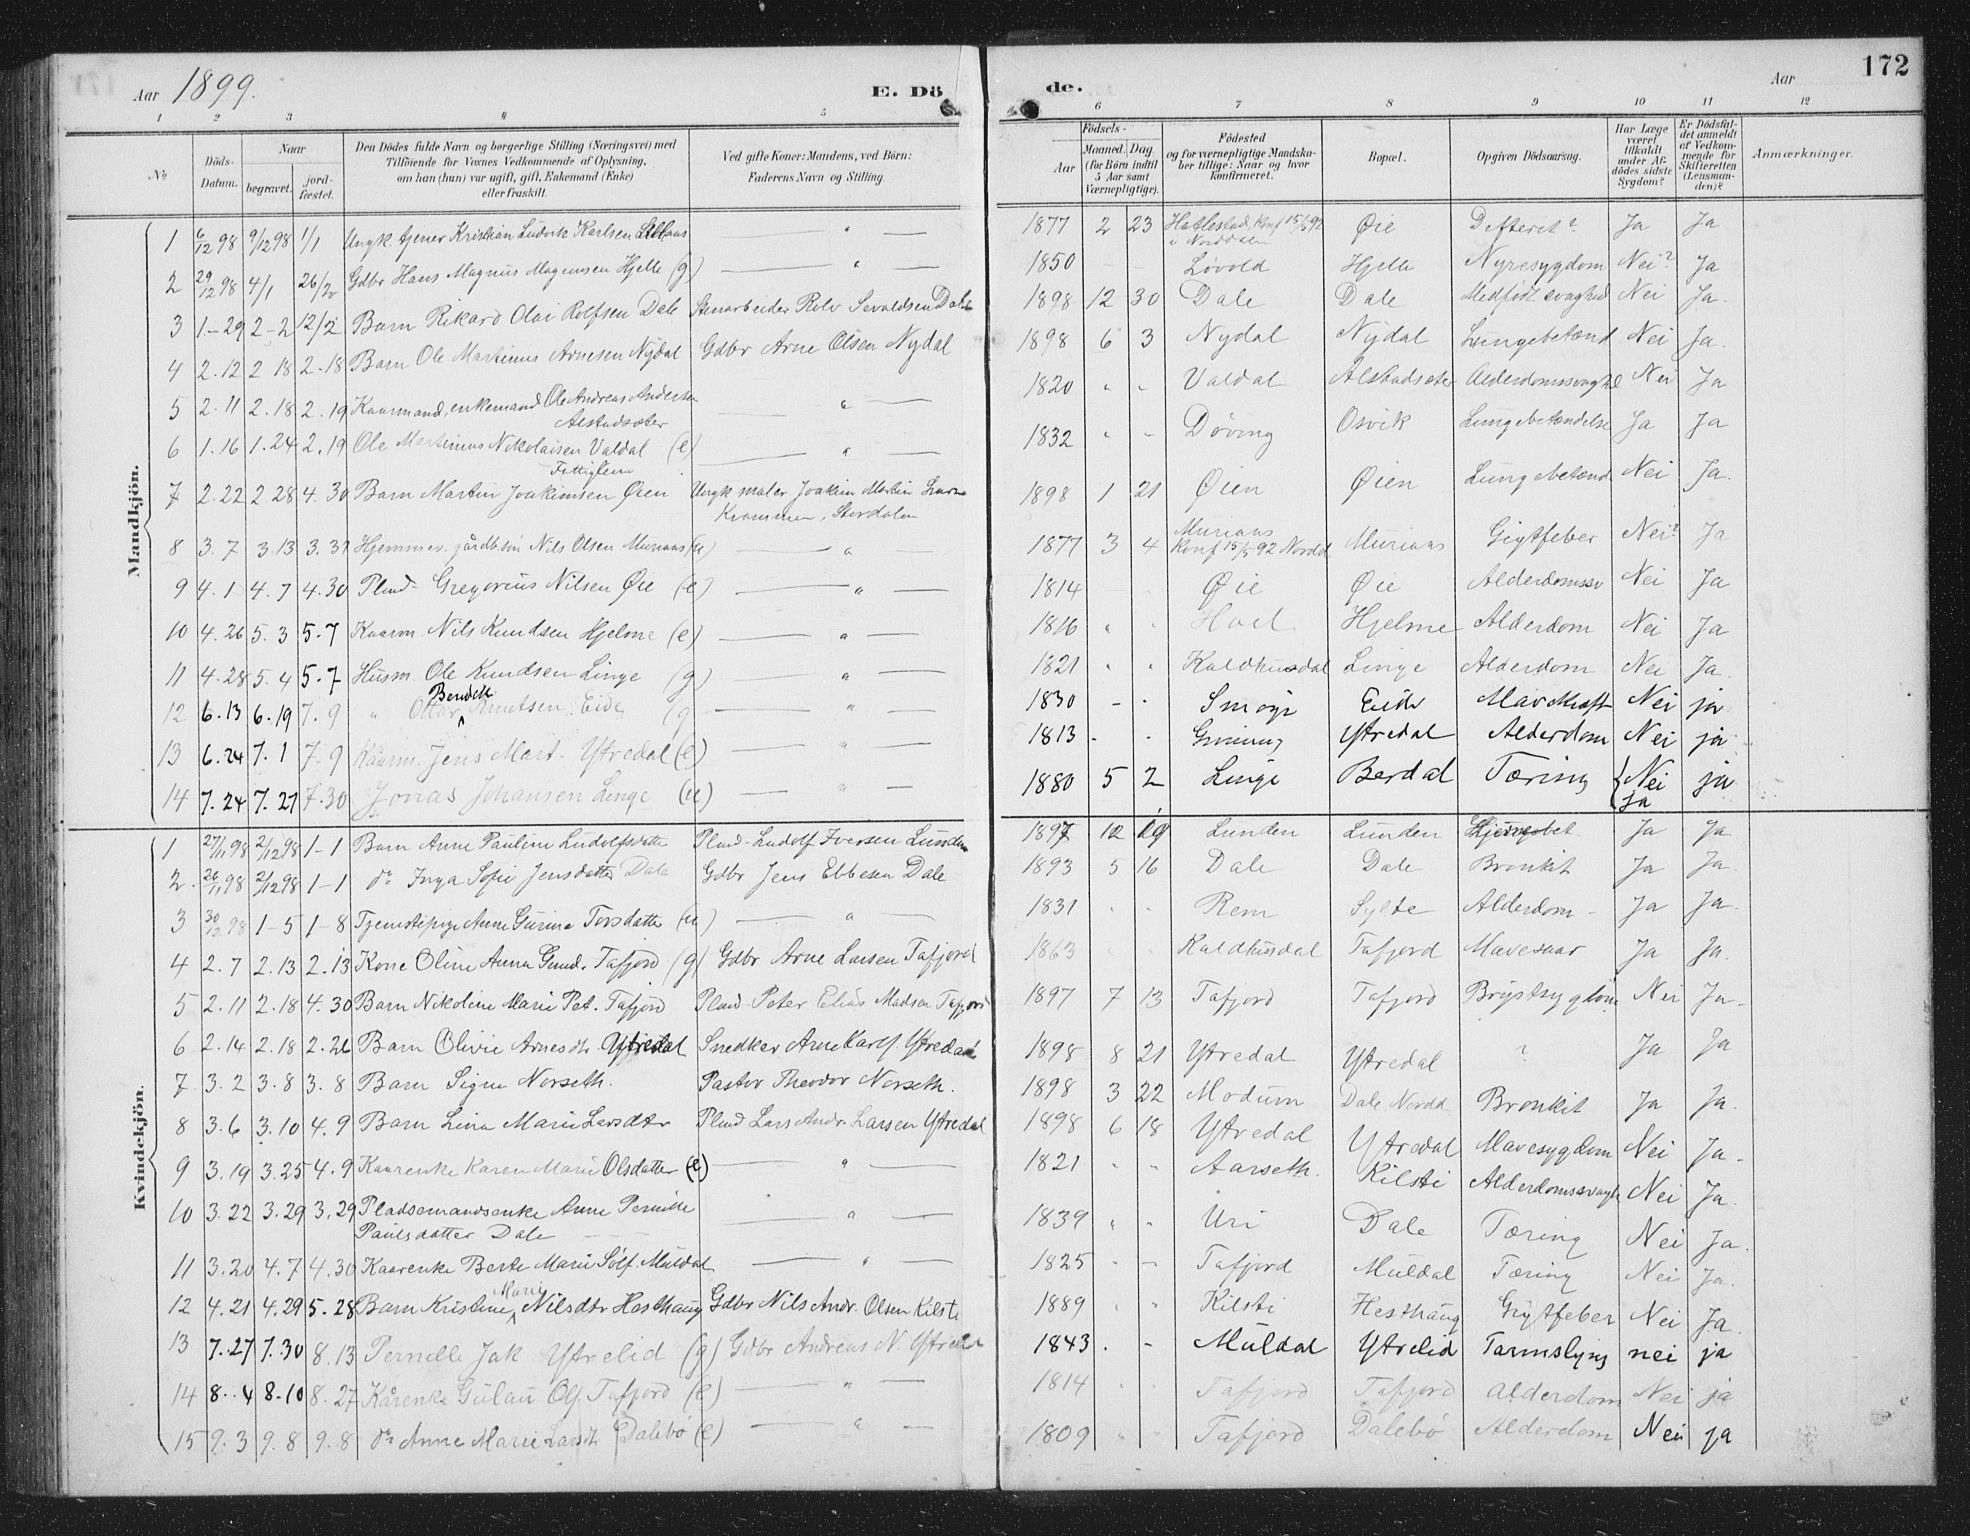 Aar 1899. E. Dö de. Aar 172
1 2 3 4 5 6 7 8 9 10 11 12
No
Döds-Datum.
Naar
begravet.
jord-fæstet.
Den Dödes fulde Navn og borgerlige Stilling (Næringsvei) med
Tilföiende for Voxnes Vedkommende af Oplysning,
om han (hun) var ugift, gift, Enkemand (Enke)
eller fraskilt.
Ved gifte Koner: Mandens, ved Börn:
Faderens Navn og Stilling.
Födsels-
Aar
Maaned. Dag.
(for Börn indtil
5 Aar samt
Værnepligtige).
Födested
og for værnepligtige Mandska-
ber tillige: Naar og hvor
konfirmeret.
Bopæl.
Opgiven Dödsaarsag.
Har Læge
været
tilkaldt
under Af-
dödes sidste
Sygdom?
Er Dödsfal-
det anmeldt
af Vedkom-
mende for
Skifteretten
(Lensman-
den)?
Anmærkninger.
Mandkjön.
1 6/12 98 9/12 98 1/1 Ungk tjener Kristian Ludvik Karlsen — " — 1877 2 23 Hatlestad, konf 15/5 92 i Norddalen Øie Defterit? Ja Ja
2 29/12 98 4/1 26/2 Gdbr Hans Magnus Magnusen Hjelle (g) — " — 1850 - - Løvold Hjelle Nyresygdom Nei? Ja
3 1-29 2-2 12/2 Barn Rikard Olai Rolfsen Dale Stenarbeider Rolv Sevaldsen Dale 1898 12 30 Dale Dale Medfødt svaghed Nei Ja.
4 2.12 2 18 2.18 Barn Ole Martinus Arnesen Nydal Gdbr Arne Olsen Nydal 1898 6 3 Nydal Nydal Lungebetænd Nei Ja.
5 2.11 2.18 2.19 Kaarmand, enkemand Ole Andreas Andersen Alstadsæter — " — 1820 " - Valdal Alstadsæter Alderdomssvaghd Nei Ja
6 1.16 1.24 2.19 Ole Martinius Nikolaisen Valdal (e) Fattiglem — " — 1832 " - Døving Osvik Lungebetændelse Ja Ja
7 2.22 2.28 4.30 Barn Martin Joakimsen Øien Ungk maler Joakim Martin Krammen, Stordalen 1898 1 21 Øien Øien Lungebetænd Nei Ja.
8 3.7 3.13 3.31 Hjemmev. gårdbsøn Nils Olsen Muriaas (u) — " — 1877 3 4 Muriaas Konf 15/5 92 Nordd Muriaas Gigtfeber Nei? Ja
9 4.1 4.7 4.30 Plmd- Gregorius Nilsen Øie (e) — " — 1814 - - Øie Øie Alderdomssv Nei Ja
10 4.26 5.3 5.7 Kaarm. Nils Knudsen Hjelme (e) — " — 1816 " " Hoel Hjelme Alderdom Nei Ja
11 4.28 5.4 5.7 Husm. Ole Knudsen Linge (g) — " — 1821 " " Kaldhusdal Linge Alderdom Nei Ja.
12 6.13 6.19 7.9 " Ottar Bendik Knutsen Eide (g — " — 1830 - - Smoge Eide Mavekræft Nei ja
13 6.24 7.1 7.9 Kaarm. Jens Mart. Ytredal (e) — " — 1813 - - Ytredal Alderdom Nei ja
14 7.24 7.27 7.30 Jonas Johansen Linge (u) — " — 1880 5 2 Linge Berdal Tæring { Nei ja ja
Kvindekjön.
1 27/11 98 2/12 98 1-1 Barn Anne Pauline Ludolfsdatte Plmd- Ludolf Iversen Lunden 1897 12 19 Lunden Lunden Ja Ja
2 26/11 98 2/12 98 1-1 do Inga Sofie Jensdatter Dale Gdbr Jens Ebbesen Dale 1893 5 16 Dale Dale Bronkit Ja Ja.
3 30/12 98 1-5 1-8 Tjenestepige Anne Gurine Torsdatte (u) — " — 1831 - - Rem Sylte Alderdom - Ja Ja.
4 2.7 2.13 2.13 Kone Oline Anna Gund. Tafjord (g) Gdbr Arne Larsen Tafjord 1863 Kaldhusdal Tafjord Mavesaar Ja Ja.
5 2.11 2.18 4.30 Barn Nikoline Marie Pet. Tafjord Plmd- Peter Elias Madsen Tafjord 1897 7 13 Tafjord Tafjord Brystsygdom Nei Ja-
6 2.14 2.18 2.26 Barn Olivie Arnesdtr Ytredal Snedker Arne Karlf. Ytredal 1898 8 21 Ytredal Ytredal ? Ja Ja
7 3.2 3.8 3.8 Barn Signe Norseth. Pastor Theodor Norseth. 1898 3 22 Modum Dale Nordd Bronkit Ja Ja.
8 3.6 3.10 4.9 Barn Lina Marie Larsdtr Plmd Lars Andr. Larsen Ytredal 1898 6 18 Ytredal Ytredal Mavesygdom Nei Ja-
9 3.19 3.25 4.9 Kaarenke Karen Marie Olsdatter (e) — " — 1821 " " Aarseth. Kilsti Alderdomssvagh Nei Ja.
10 3.22 3.29 3.29 Pladsemandsenke Anne Pernille Paulsdatter Dale — " — 1839 " " Uri Dale Tæring Nei Ja.
11 3.20 4.7 4.30 Kaarenke Berte Marie Sølf. Muldal — " — 1825 " - Tafjord Muldal Tæring Nei Ja.
12 4.21 4.29 5.28 Barn Kristine Marie Nilsdtr Hesthaug Gdbr Nils Andr. Olsen Kilsti 1889 " " Kilsti Hesthaug Gigtfeber Nei Ja.
13 7.27 7.30 8.13 Pernille Jak Ytrelid (g) Gdbr Andreas N. Ytrelid 1843 . - Muldal Ytrelid Tarmslyng nei ja
14 8.4 8.10 8.27 Kårenke Gulau Olf. Tafjord (e) — " — 1814 Tafjord Tafjord Alderdom Nei ja
15 9.3 9.8 9.8 do Anne Marie Larsdtr Dalebø (e) — " — 1809 " " Tafjord Dalebø Alderdom Nei ja